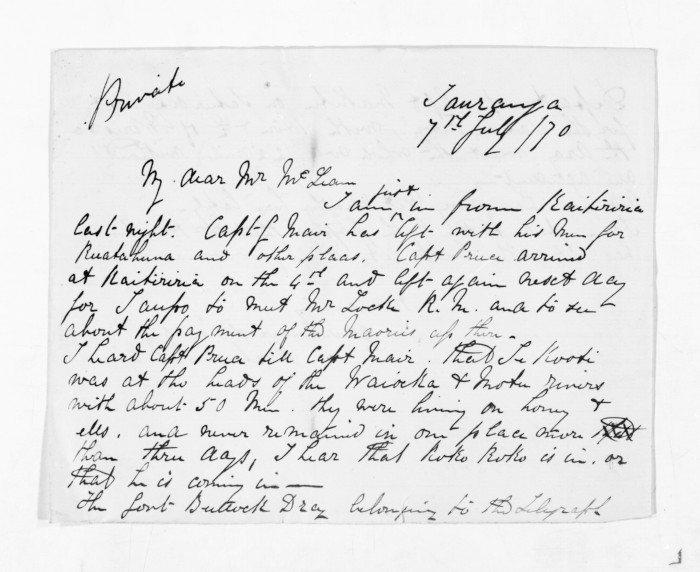 Private
Tauranga
7th July /70
My dear Mr McLean
I am just in from Kaiteriria
last night. Capt G Mair has left with his Men for
Ruatahuna and other places. Capt Preece arrived
at Kaiteriria on the 4th and left again next day
for Taupo to meet Mr Locke R.M. and to see
about the payment of the Maories up there.
I heard Capt Preece tell Capt Mair. that Te Kooti
was at the heads of the Waioeka & Motu rivers
with about 50 Men. they were living on honey &
ells. and never remained in one place more
than three days, I hear that Koko Koko is in. or
that he is coming in—
The Govt Bullock Dray belonging to the Telegraph